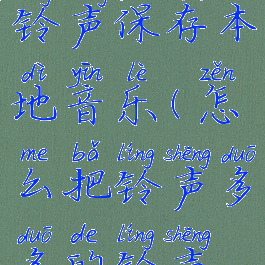 铃声保存本
dì yīn lè zěn
地音乐(怎
me bǎ líng shēng duō
么把铃声多
duō de líng shēng
多的铃声